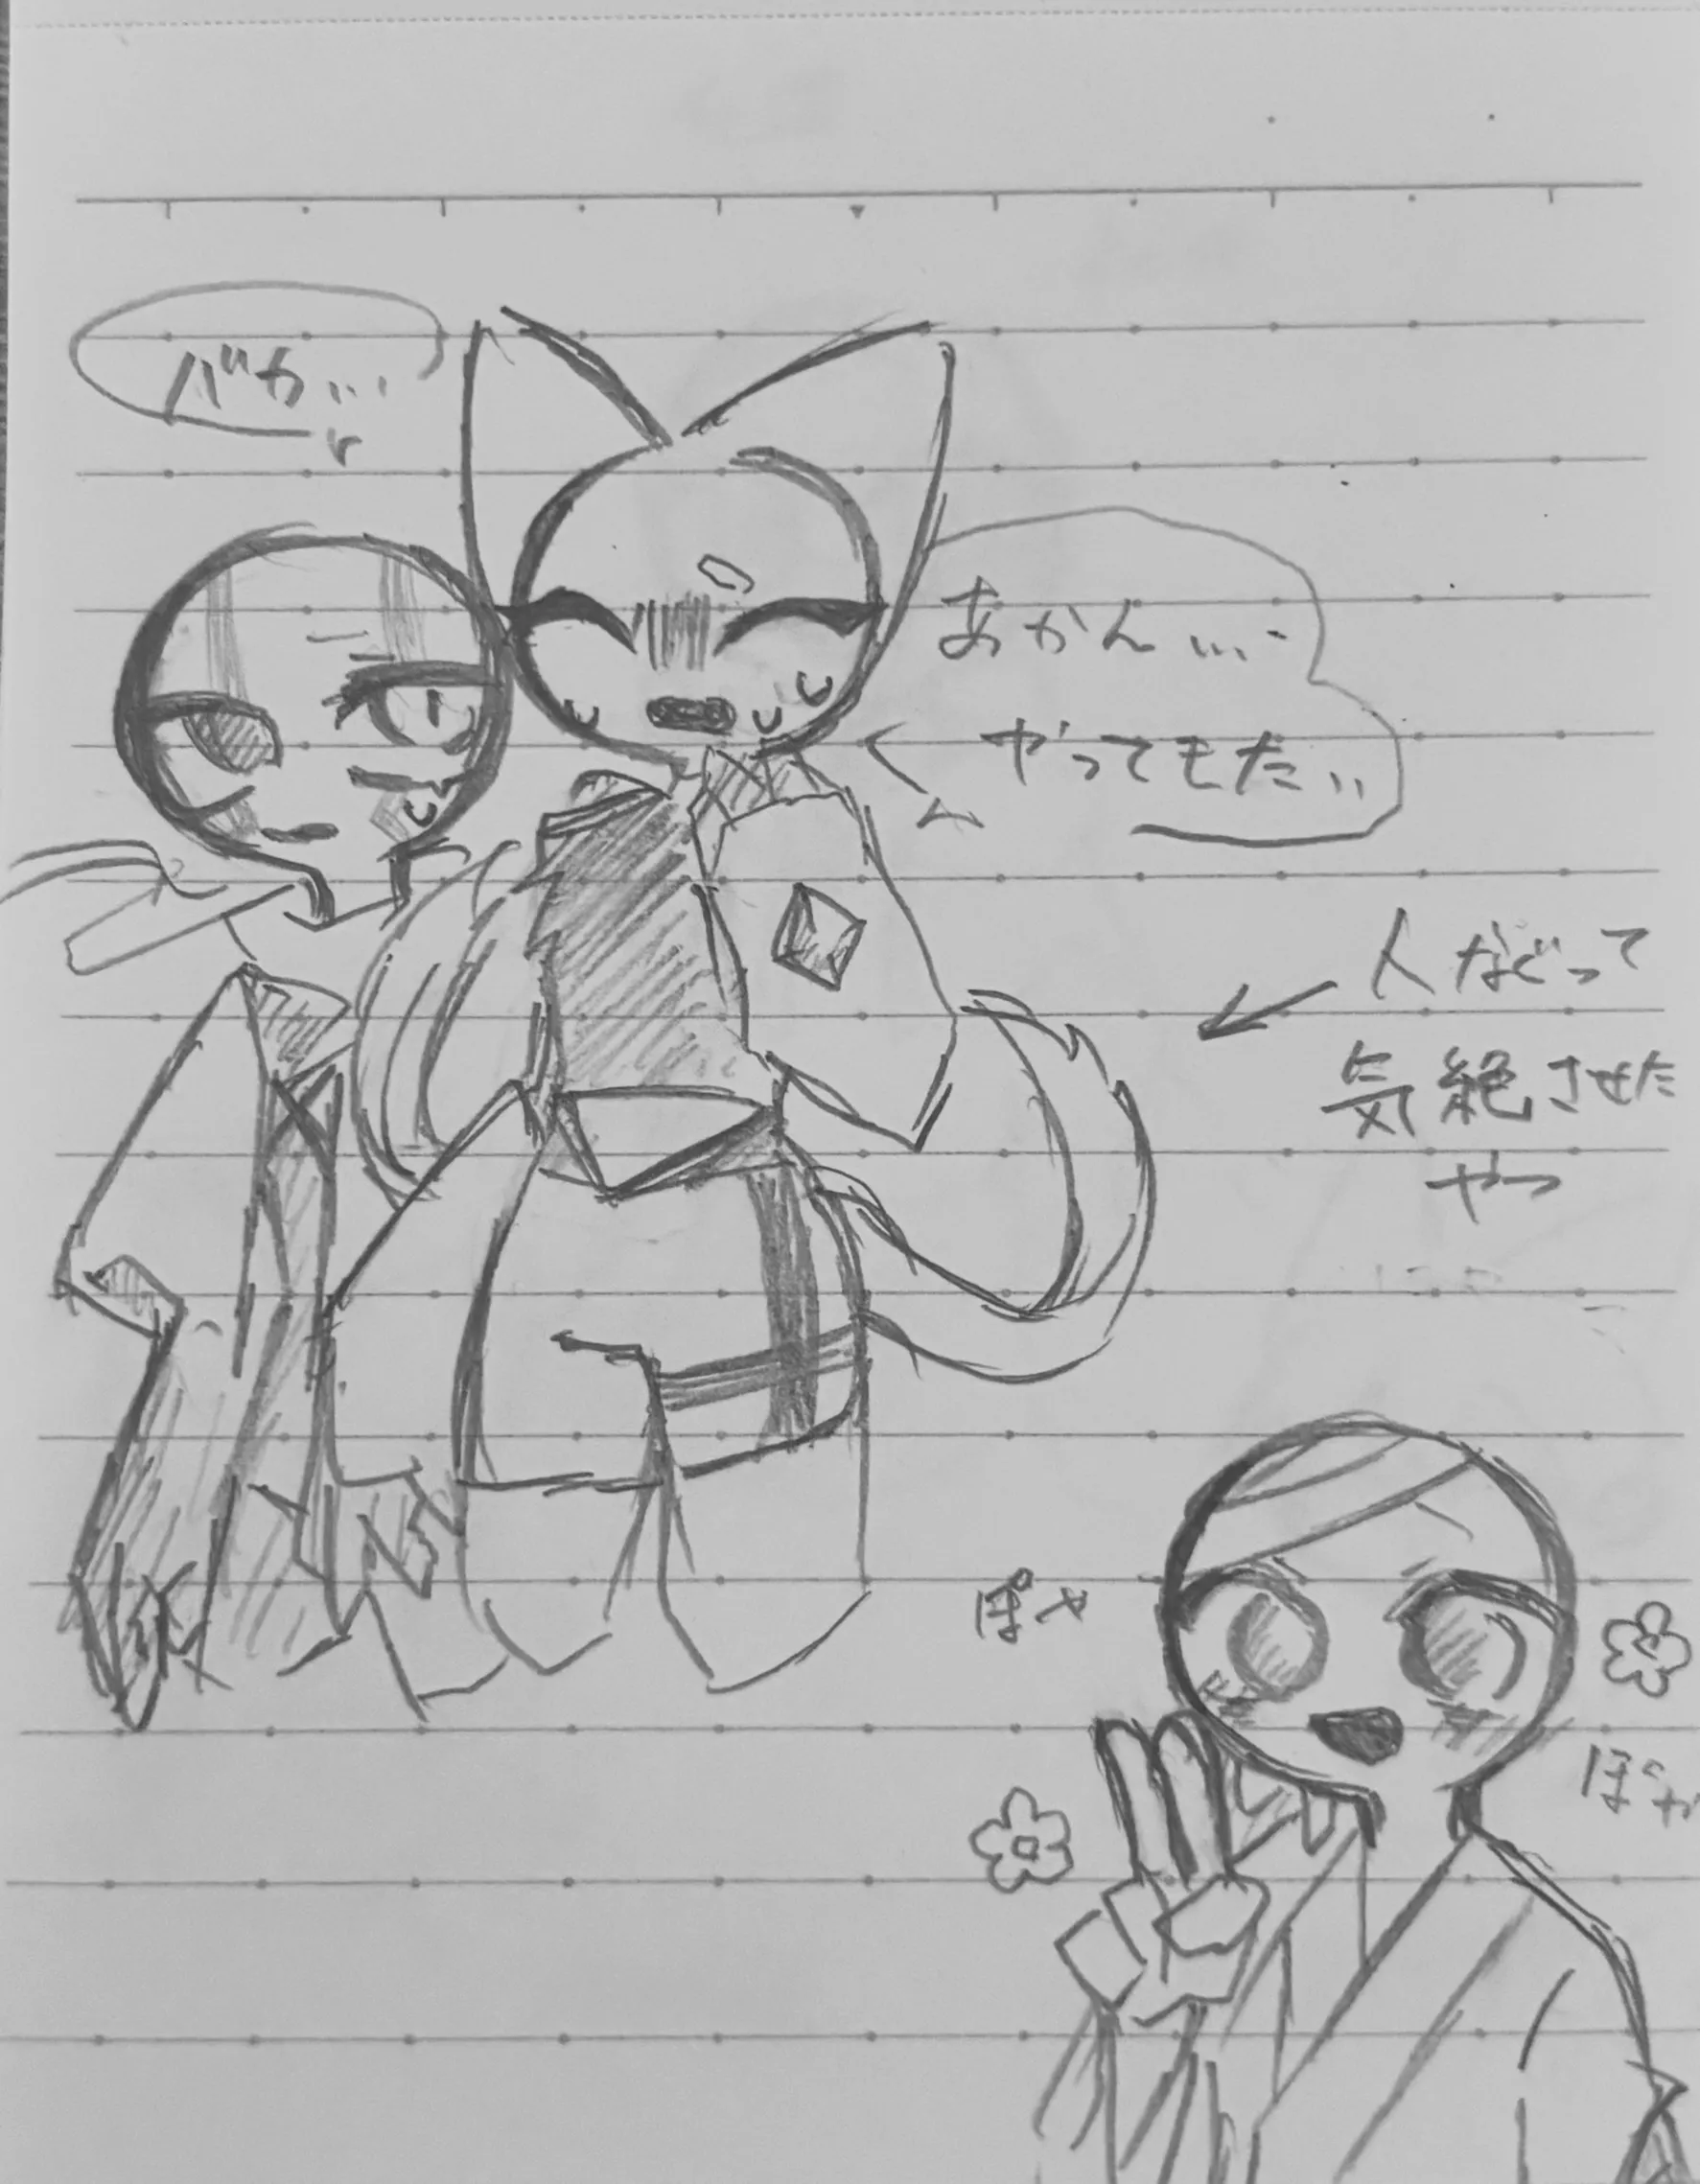 バカ...
あかん....
やってもた...
人なぐって
気絶させた
やつ
ぽや
ぽや